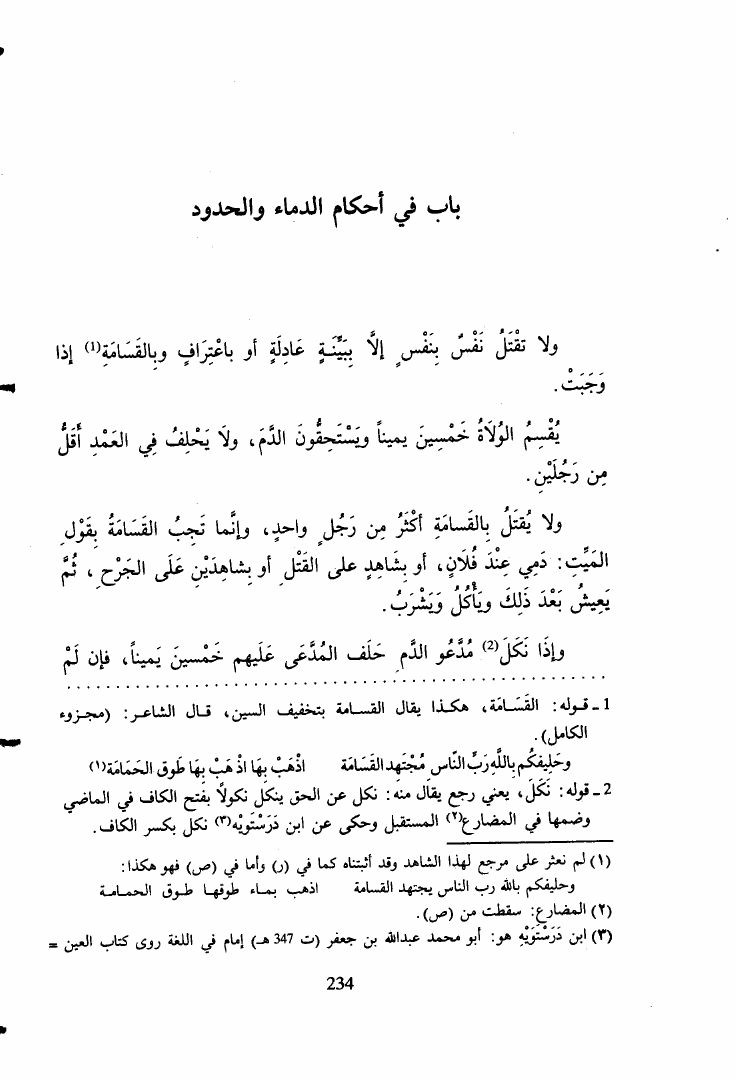 باب في أحكام الدماء والحدود
ولا تقْتَلُ نَفْسٌ بِنَفْسٍ إلَّا بِبَيِّنَةٍ عَادِلَةٍ أو باعْتِرَافٍ وبالقَسَامَةِ(1) إذا
وَجَبَتْ.
يُقْسِمُ الوُلَاةُ خَمْسِينَ يميناً ويَسْتَحِقُّونَ الدَّمَ، ولَا يَحْلِفُ فِي العَمْدِ أقَلُّ
مِن رَجُلَيْنِ.
ولا يُقتَلُ بِالقَسامَةِ أكْثَرُ مِن رَجُلٍ واحدٍ، وإنَّما تَجِبُ القَسَامَةُ بِقَوْلِ
المَيِّتِ: دَمِي عِنْدَ فُلَانٍ، أو بِشَاهِدٍ على القَتْلِ أو بشاهِدَيْنِ عَلَى الجَرْحِ، ثُمَّ
يَعِيشُ بَعْدَ ذَلِكَ ويَأْكُلُ وَيَشْرَبُ.
وإذَا نَكَلَ(2) مُدَّعُو الدَّمِ حَلَف المُدَّعَى عَلَيهم خَمْسِينَ يَميناً، فإن لَمْ
1 ـ قوله: القَسَامَة، هكذا يقال القسامة بتخفيف السين، قال الشاعر: (مجزوء
الكامل).
وحَلِيفكُم بِاللَّهِ رَبِّ النَّاسِ مُجْتَهِد القَسَامَة اذْهَبْ بِهَا اذْهَبْ بِهَا طَوق الحَمَامَة(١)
2 ـ قوله: نَكَلَ، يعني رجع يقال منه: نكل عن الحق ينكل نكولاً بفتح الكاف في الماضي
وضمها في المضارع(٢) المستقبل وحكى عن ابن دَرَسْتَوَيْه(٣) نكل بكسر الكاف.
(١) لم نعثر على مرجع لهذا الشاهد وقد أثبتناه كما في (ر) وأما في (ص) فهو هكذا:
وحليفكم بالله رب الناس يجتهد القسامة اذهب بماء طوقها طوق الحمامة
(٢) المضارع: سقطت من (ص).
(٣) ابن دَرَسْتَوَيْه هو: أبو محمد عبدالله بن جعفر (ت 347 هـ) إمام في اللغة روى كتاب العين =
234